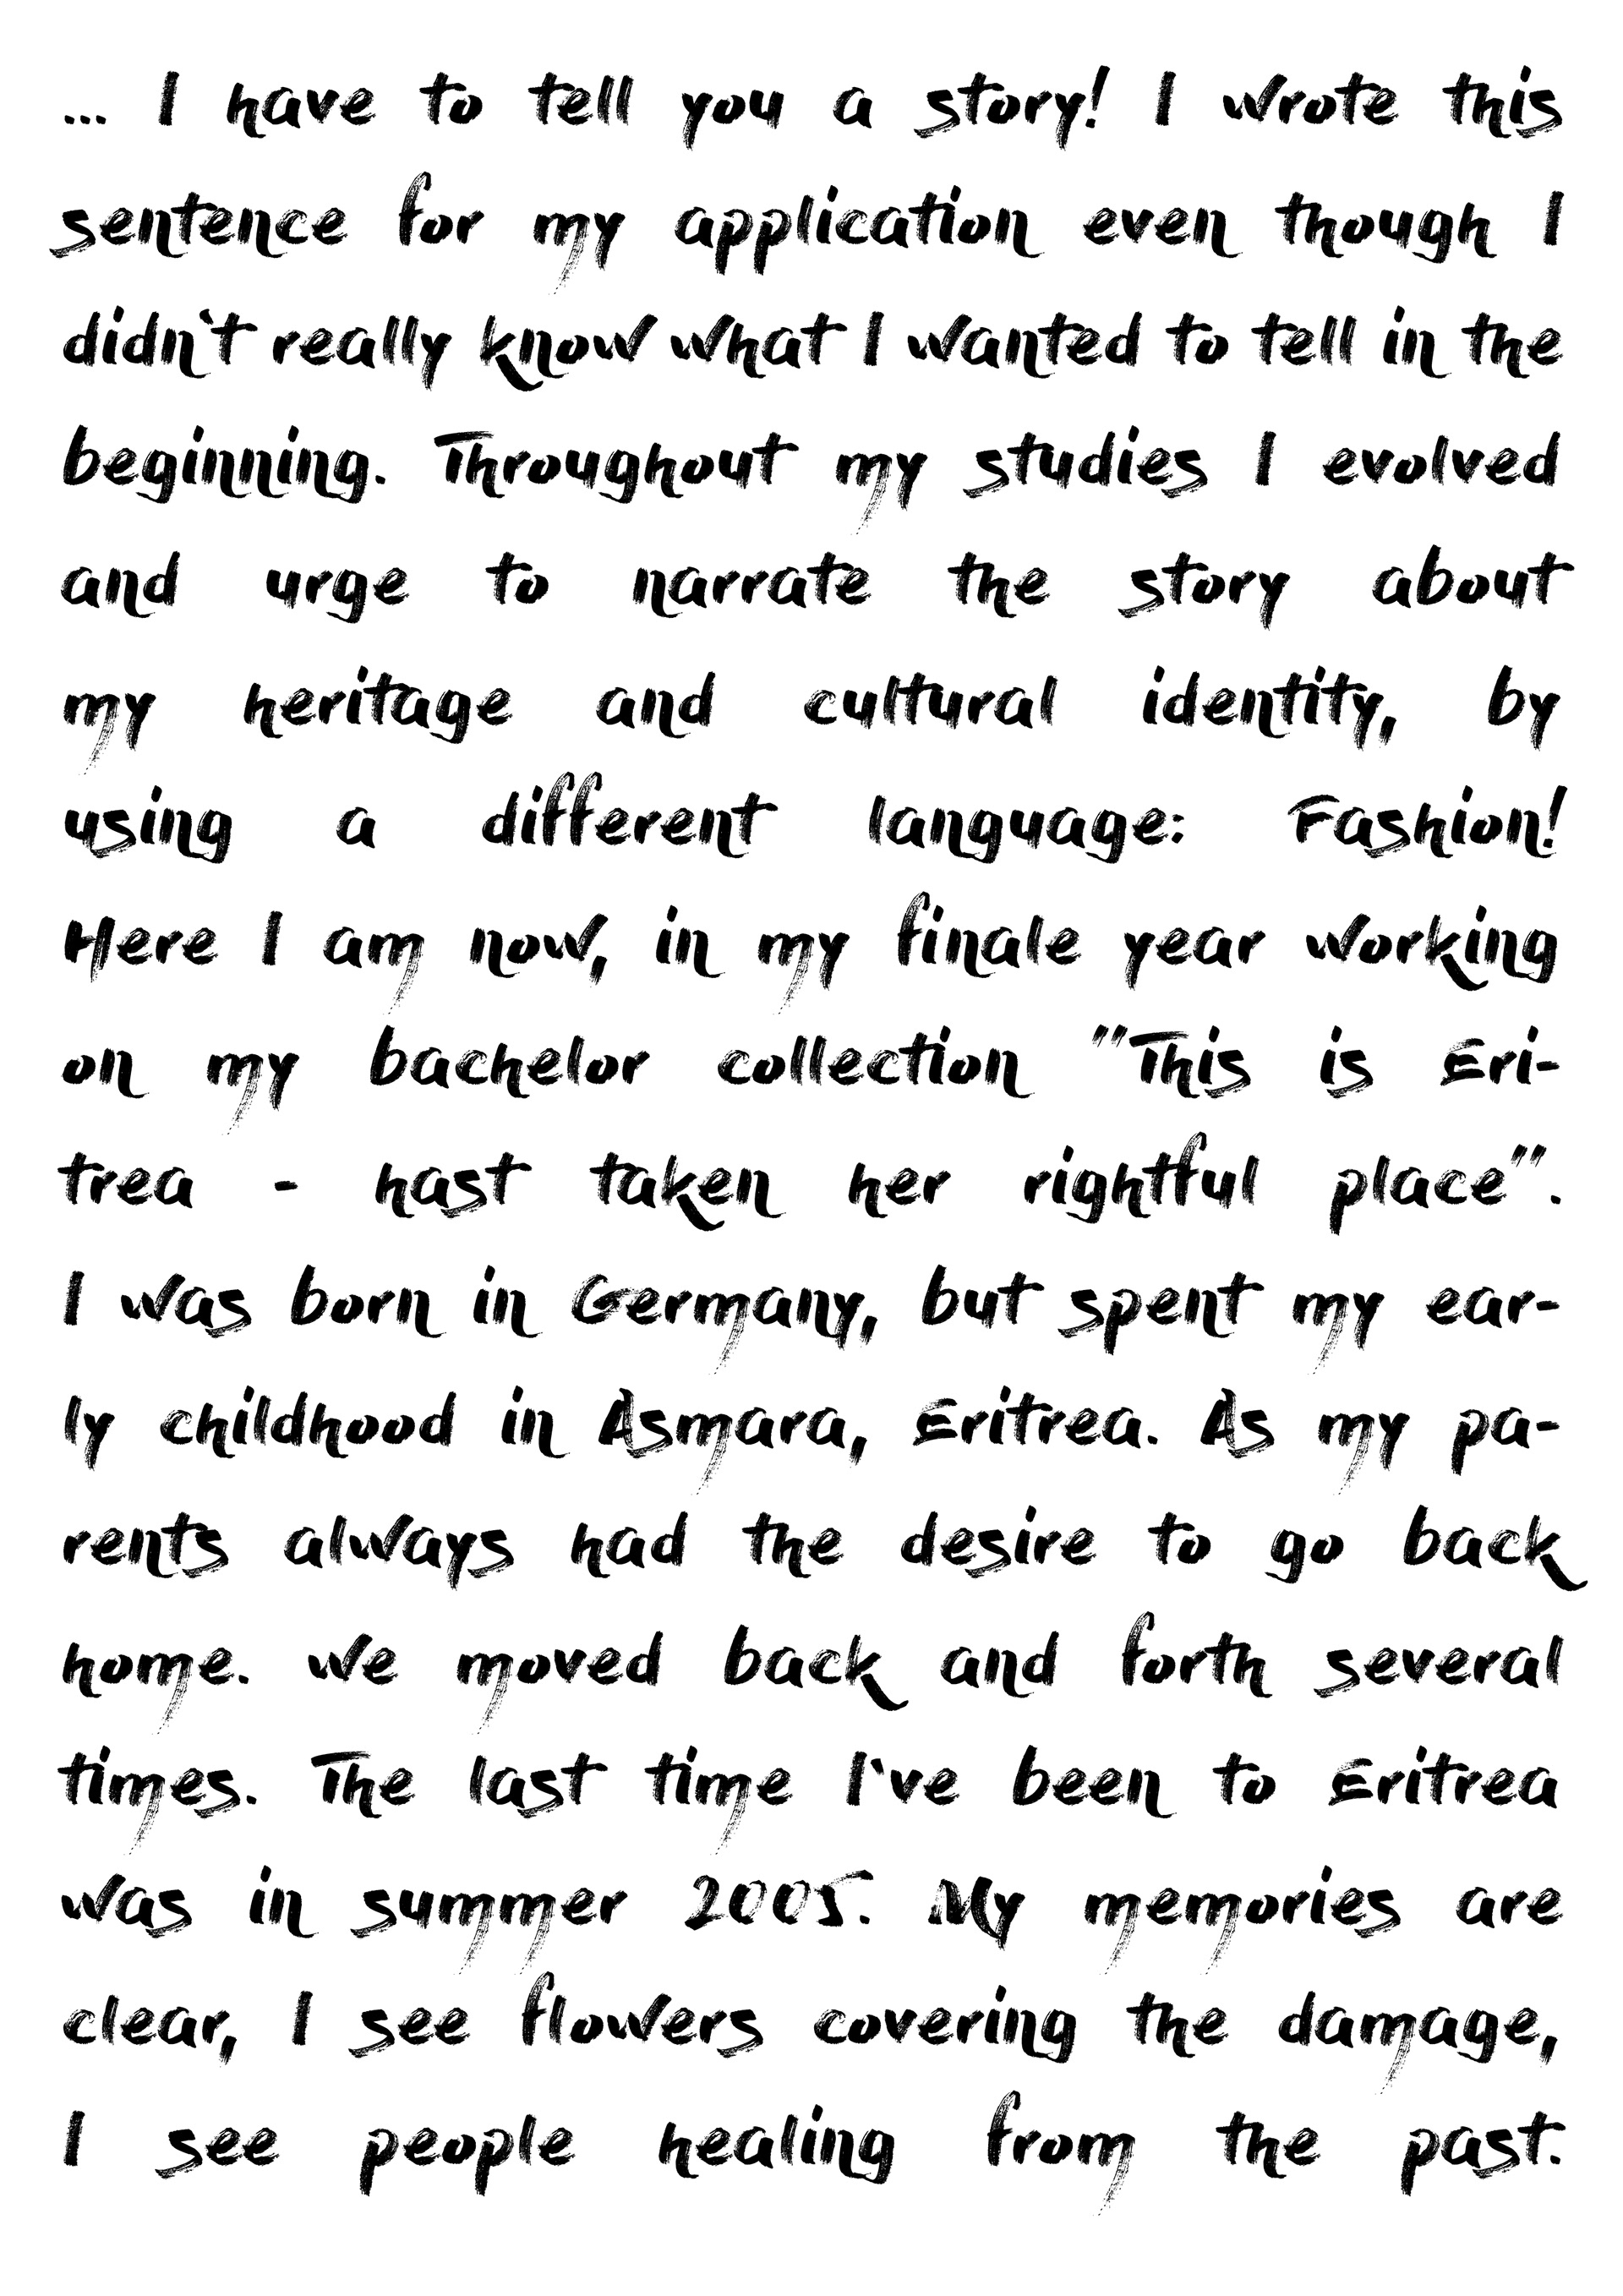 ... I have to tell you a story! I wrote this
sentence for my application even though I
didn`t really know what I wanted to tell in the
beginning. Throughout my studies I evolved
and urge to narrate the story about
my heritage and cultural identity, by
using a different language: Fashion!
Here I am now, in my finale year working
on my bachelor collection "This is Eri-
trea - hast taken her rightful place".
I was born in Germany, but spent my ear-
ly childhood in Asmara, Eritrea. As my pa-
rents always had the desire to go back
home. We moved back and forth several
times. The last time I`ve been to Eritrea
was in summer 2005. My memories are
clear, I see flowers covering the damage,
I see people healing from the past.